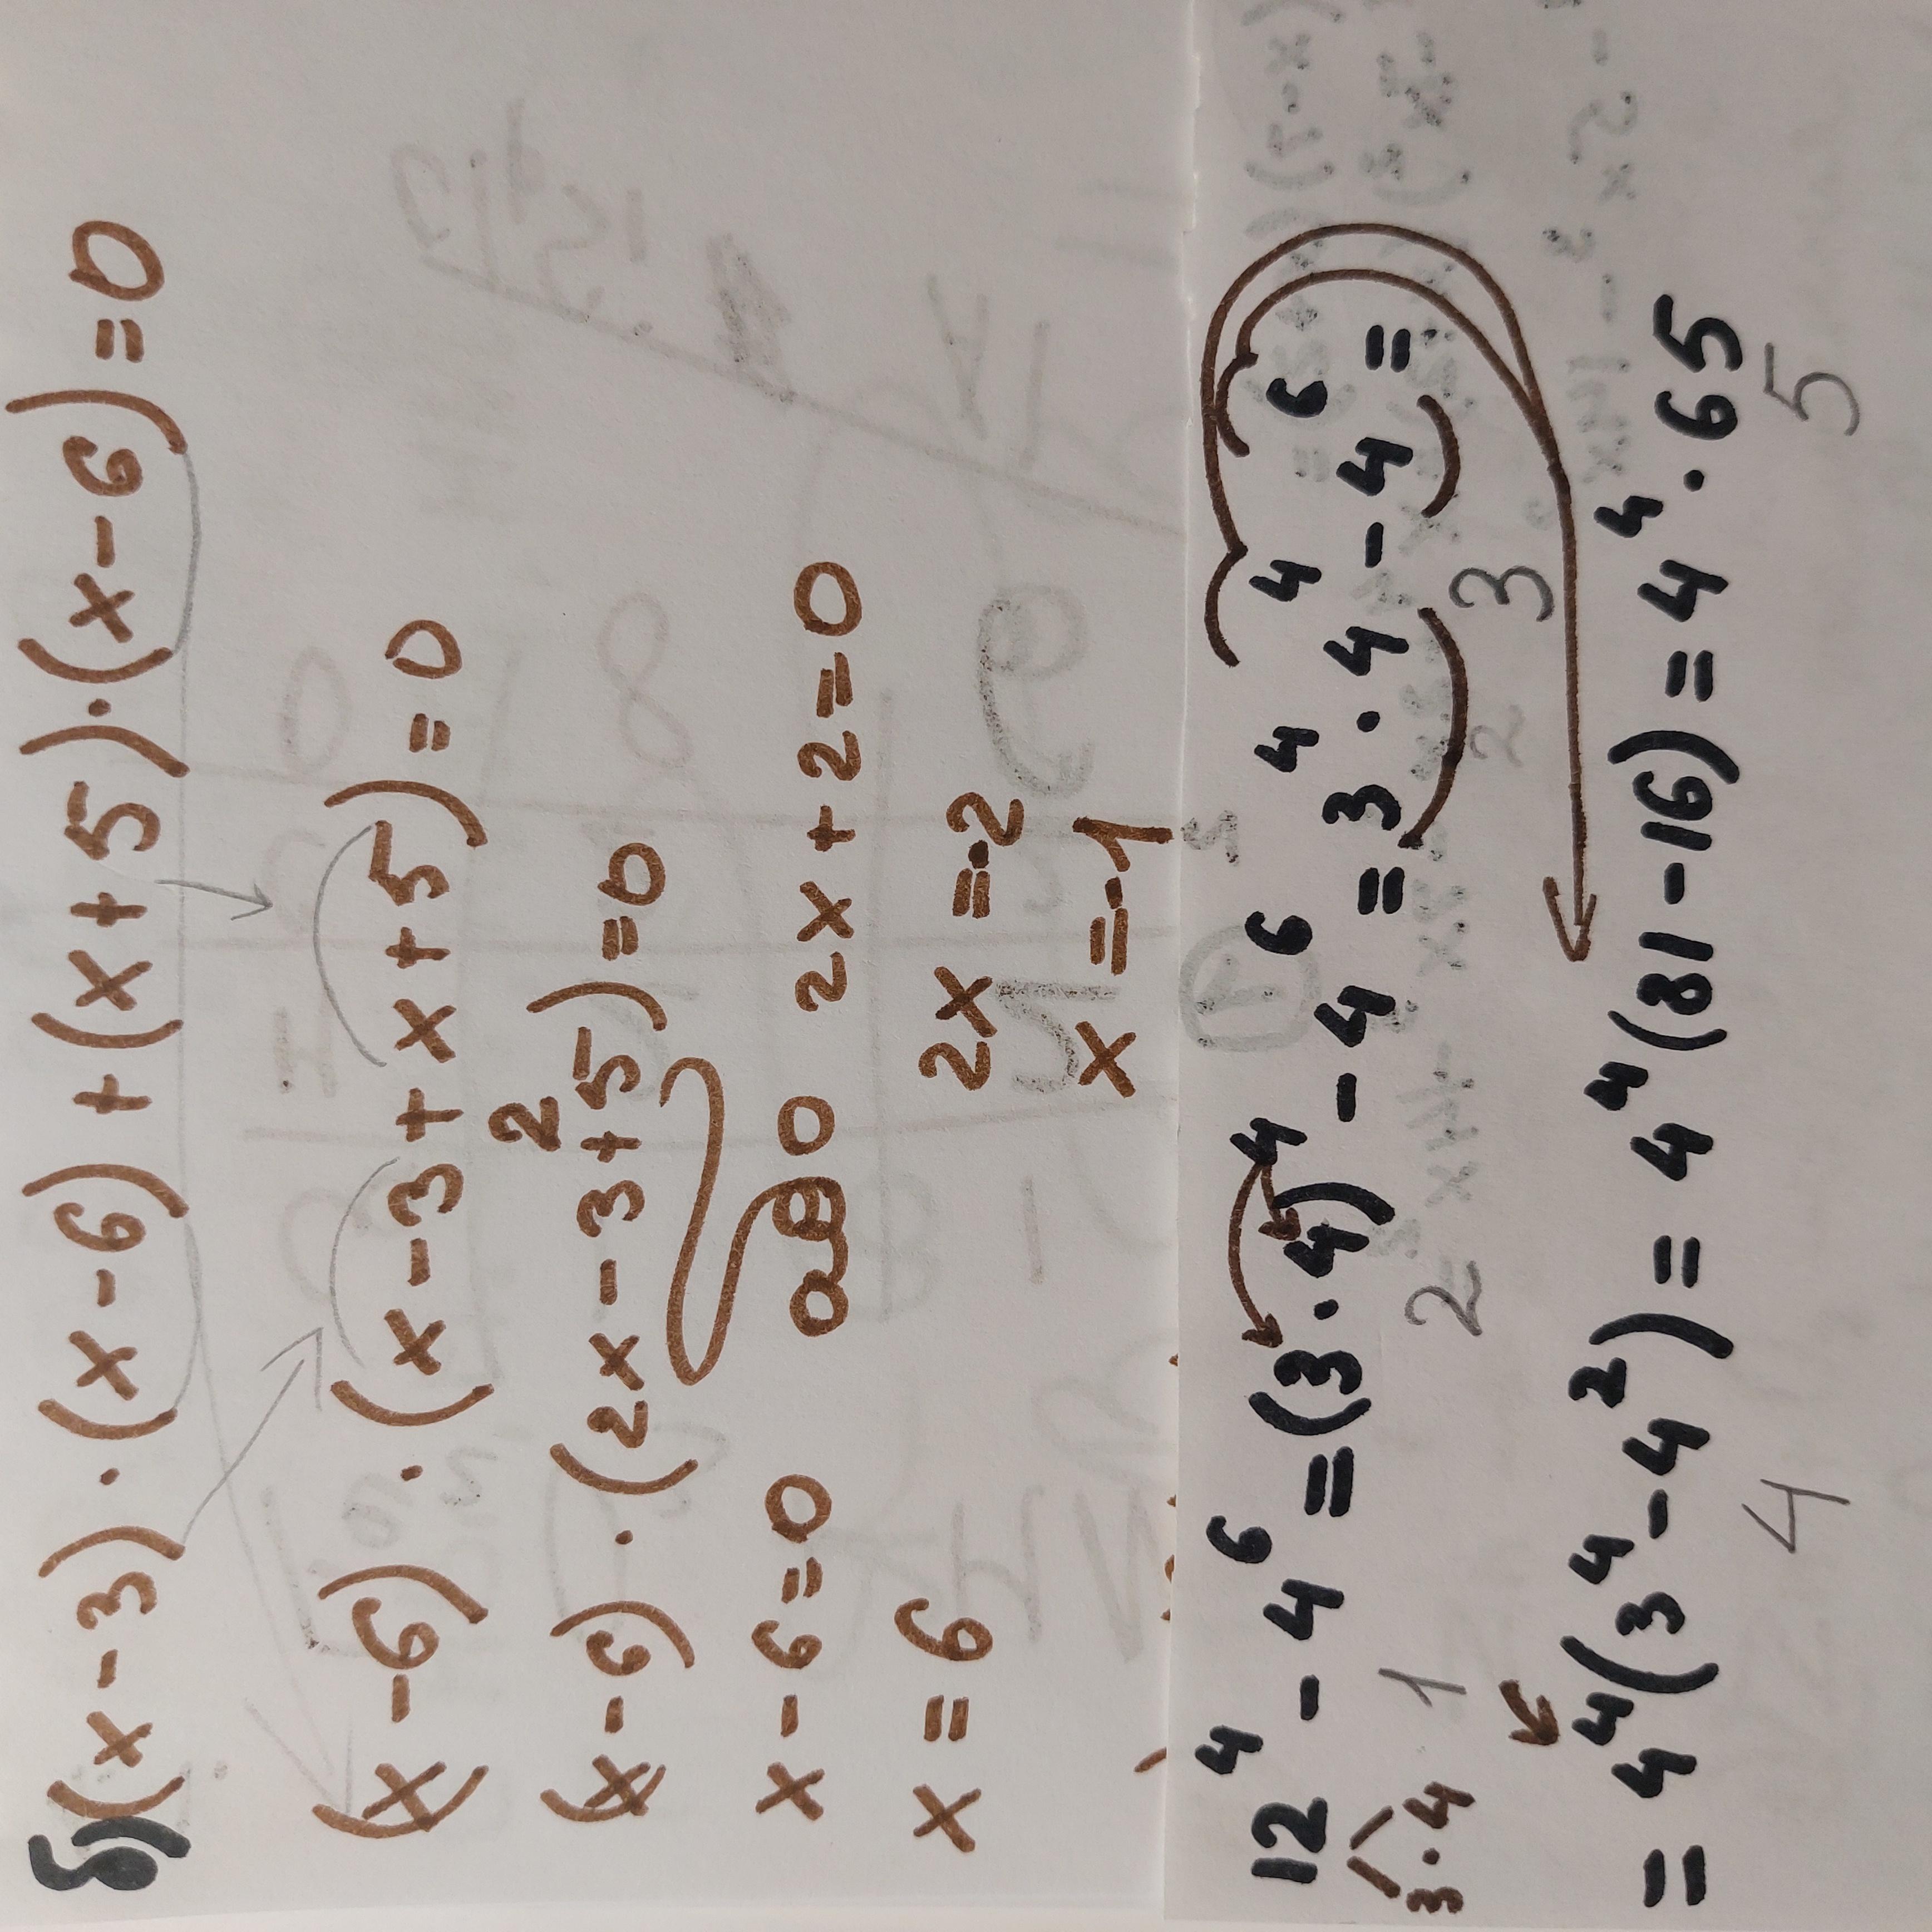 б) (x-3)·(x-6)+(x+5)·(x-6)=0
(x-6)·(x-3+x+5)=0
(x-6)·(2x-3+5)=0
2
x-6=0 2x+2=0
x=6 2x=-2
x=-1
12⁴-4⁶=(3·4)⁴-4⁶=3⁴·4⁴-4⁶=
3·4 1 2 3
=4⁴(3⁴-4²)=4⁴(81-16)=4⁴·65
4 5